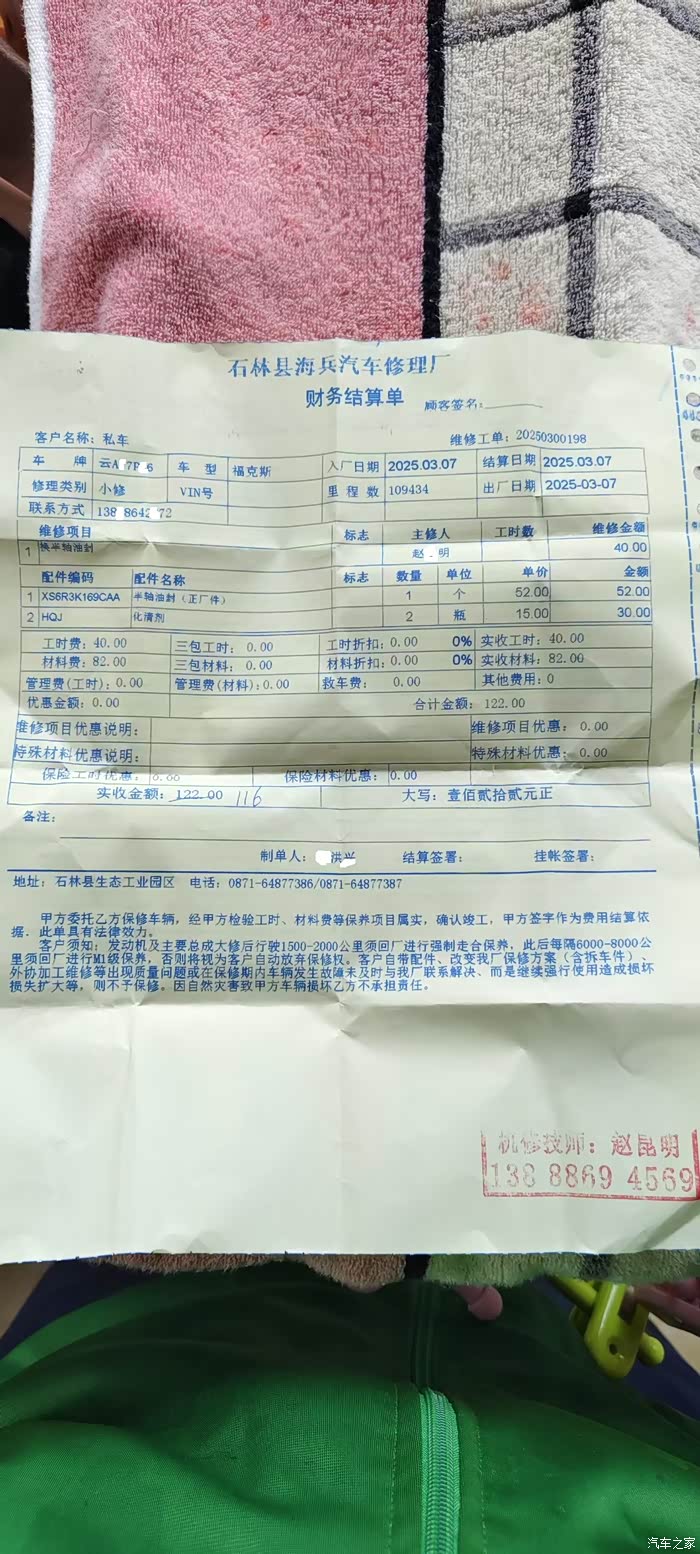 石林县海兵汽车修理厂
财务结算单 顾客签名:
客户名称: 私车 维修工单: 20250300198
车 牌 云A 7F 6 车 型 福克斯 入厂日期 2025.03.07 结算日期 2025.03.07
修理类别 小修 VIN号 里 程 数 109434 出厂日期 2025-03-07
联系方式 138 8642 72
维修项目 标志 主修人 工时数 维修金额
1 换半轴油封 赵 明 40.00
配件编码 配件名称 标志 数量 单位 单价 金额
1 XS6R3K169CAA 半轴油封（正厂件） 1 个 52.00 52.00
2 HQJ 化清剂 2 瓶 15.00 30.00
工时费: 40.00 三包工时: 0.00 工时折扣: 0.00 0% 实收工时: 40.00
材料费: 82.00 三包材料: 0.00 材料折扣: 0.00 0% 实收材料: 82.00
管理费(工时): 0.00 管理费(材料): 0.00 救车费: 0.00 其他费用: 0
优惠金额: 0.00 合计金额: 122.00
维修项目优惠说明: 维修项目优惠: 0.00
特殊材料优惠说明: 特殊材料优惠: 0.00
保险工时优惠: 0.00 保险材料优惠: 0.00
实收金额: 122.00 116 大写: 壹佰贰拾贰元正
备注:
制单人: 洪兴 结算签署: 挂帐签署:
地址: 石林县生态工业园区 电话: 0871-64877386/0871-64877387
甲方委托乙方保修车辆，经甲方检验工时、材料费等保养项目属实，确认竣工，甲方签字作为费用结算依
据．此单具有法律效力。
客户须知：发动机及主要总成大修后行驶1500-2000公里须回厂进行强制走合保养，此后每隔6000-8000公
里须回厂进行M1级保养，否则将视为客户自动放弃保修权。客户自带配件、改变我厂保修方案（含拆车件）、
外协加工维修等出现质量问题或在保修期内车辆发生故障未及时与我厂联系解决、而是继续强行使用造成损坏
损失扩大等，则不予保修。因自然灾害致甲方车辆损坏乙方不承担责任。
机修技师: 赵昆明
138 8869 4569
汽车之家